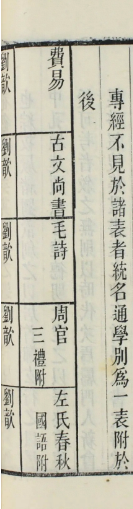 專經不見於諸表者統名通學別爲一表附於
後
費易
古文尚書
毛詩
周官
三禮附
左氏春秋
國語附
劉歆
劉歆
劉歆
劉歆
劉歆